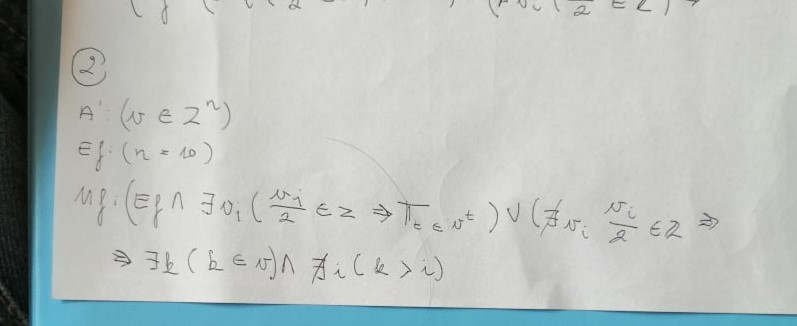 ②
A: (v ∈ Z^n)
Ef: (n = 10)
Uf: (Ef ∧ ∃v_i (v_i/2 ∈ Z ⇒ π_{t ∈ v^t}) ∨ (∄v_i v_i/2 ∈ Z ⇒
⇒ ∃k (k ∈ v) ∧ ∄i (k > i)